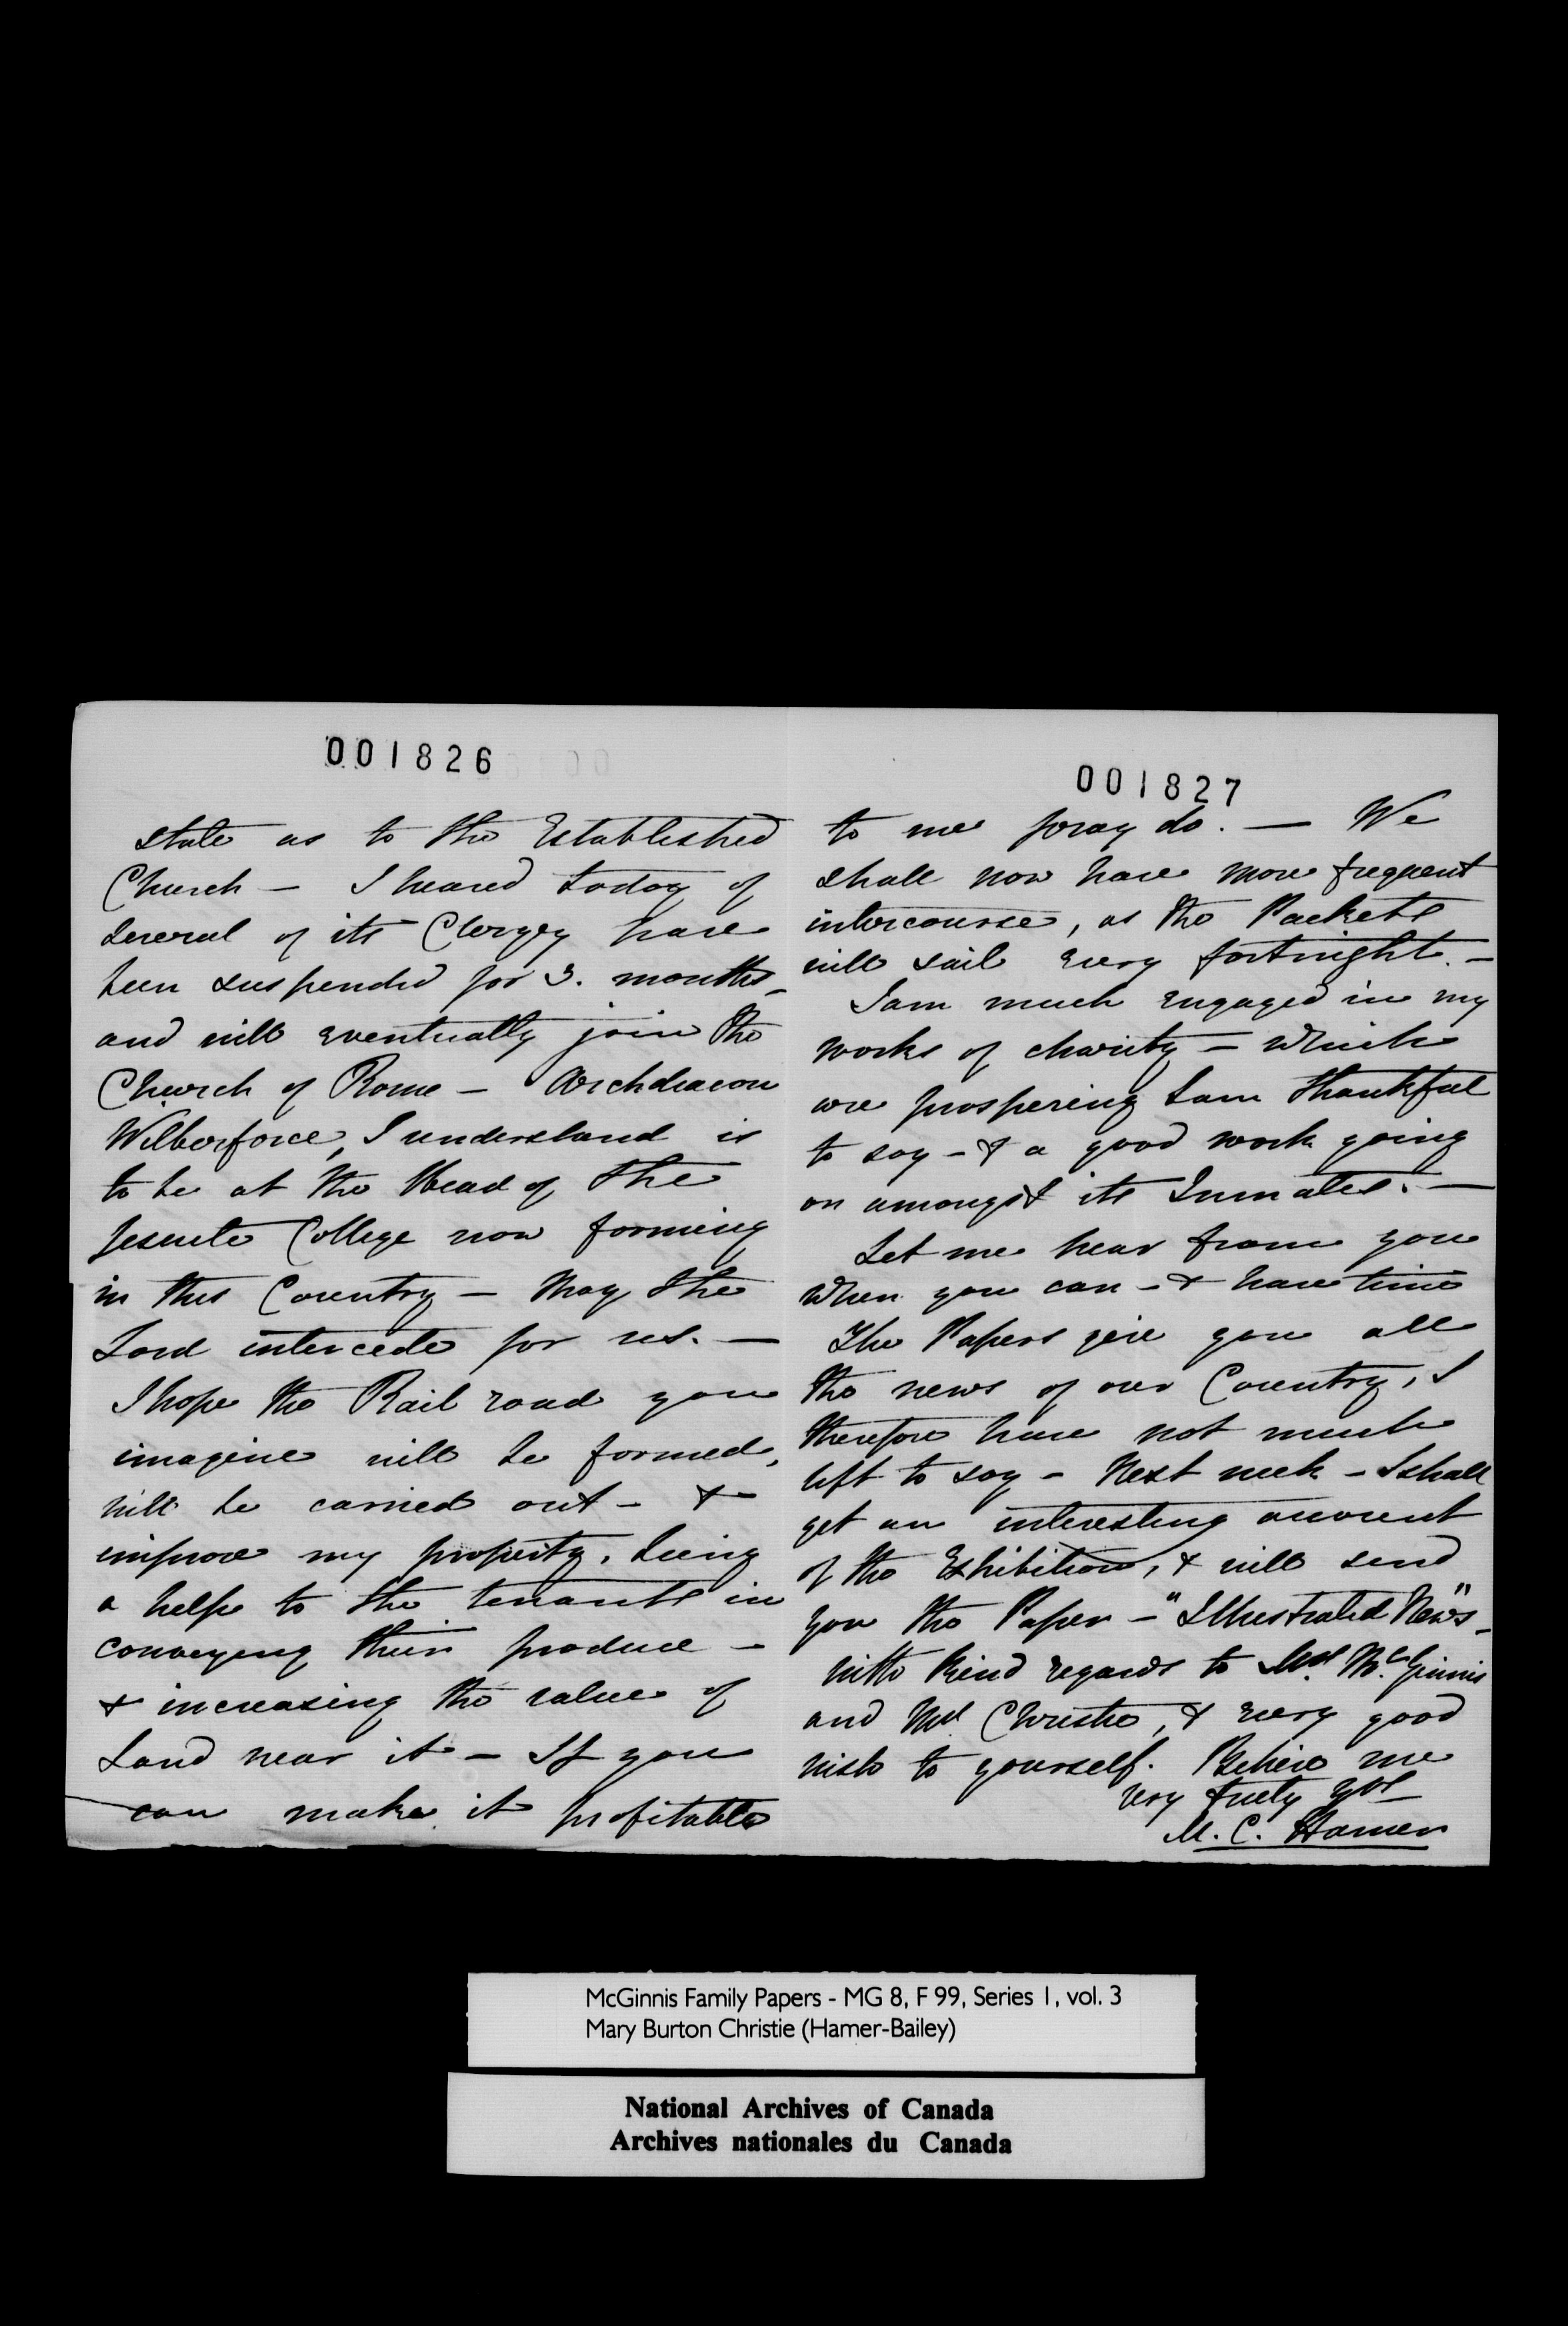 001826
state as to the Established
Church — I heard today of
several of its Clergy have
been suspended for 3. months –
and will eventually join the
Church of Rome — Archdeacon
Wilberforce, I understand is
to be at the Head of the
Jesuits College now forming
in this Country — May the
Lord intercede for us. —
I hope the Rail road you
imagine will be formed,
will be carried out – & –
improve my property. being
a help to the tenants in
conveying their produce –
& increasing the value of
Land near it – If you
can make it profitable
001827
to me pray do. — We
shall now have more frequent
intercourse, as the Packets
will sail every fortnight. –
I am much engaged in my
works of charity – which
are prospering I am thankful
to say – & a good work going
on amongst its Inmates. —
Let me hear from you
when you can – & have time
The Papers give you all
the news of our Country, I
therefore have not much
left to say – Next week – I shall
get an interesting account
of the Exhibition, & will send
you the Paper – "Illustrated News" –
with kind regards to Mrs McGinnis
and Mrs Christie, & every good
wish to yourself. Believe me
very truly yrs
M. C. Hamer
McGinnis Family Papers - MG 8, F 99, Series 1, vol. 3
Mary Burton Christie (Hamer-Bailey)
National Archives of Canada
Archives nationales du Canada